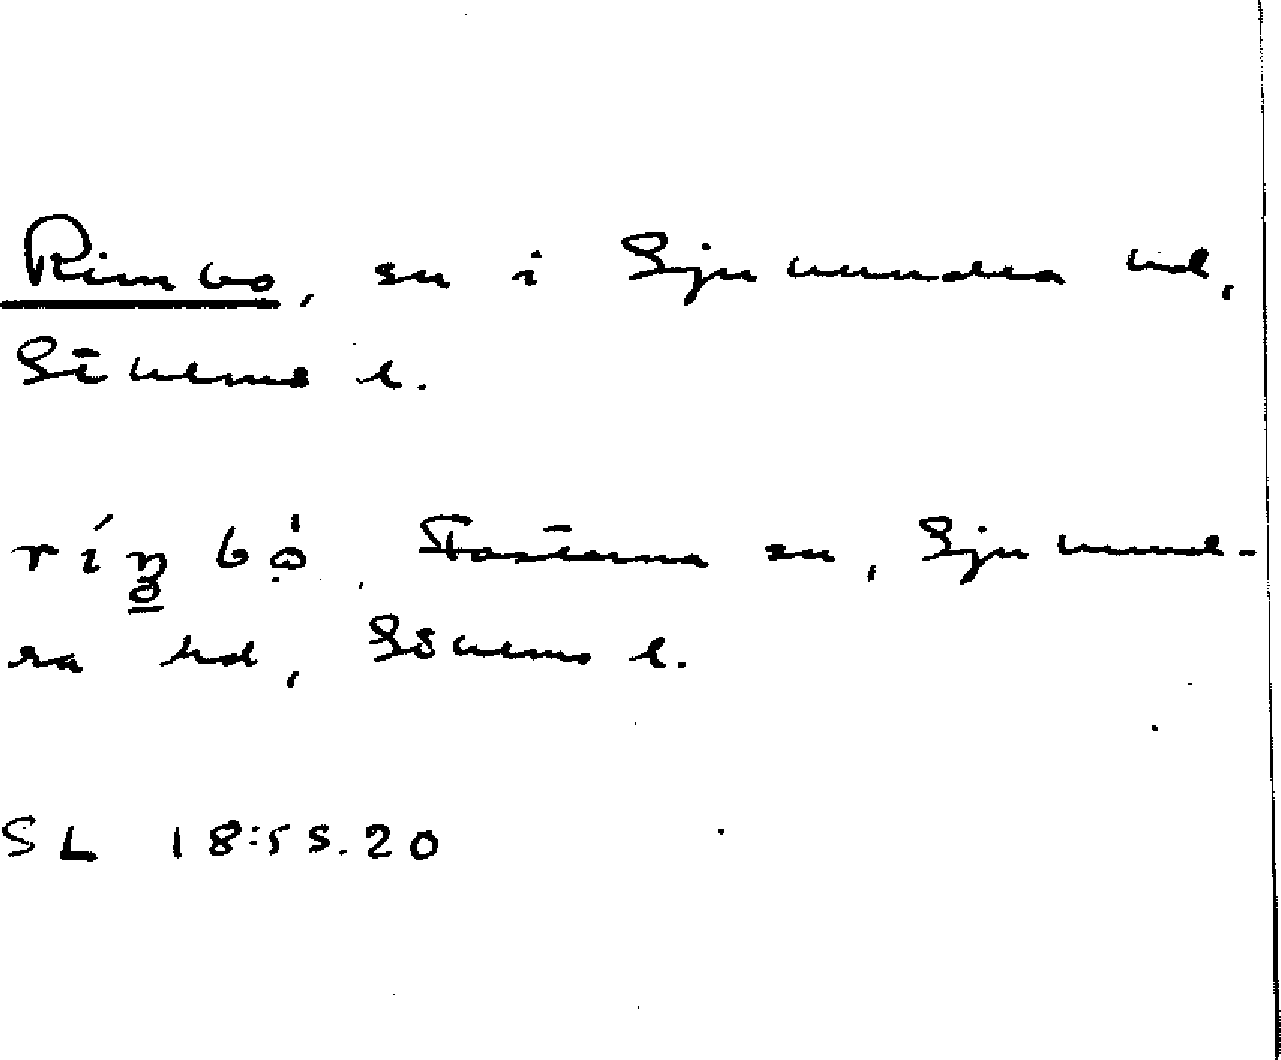 Rimbo, sn i Sjuhundra hd,
Sthlms l.
Fasterna sn, Sjuhund-
ra hd, Sthlms l.
SL 18:55.20